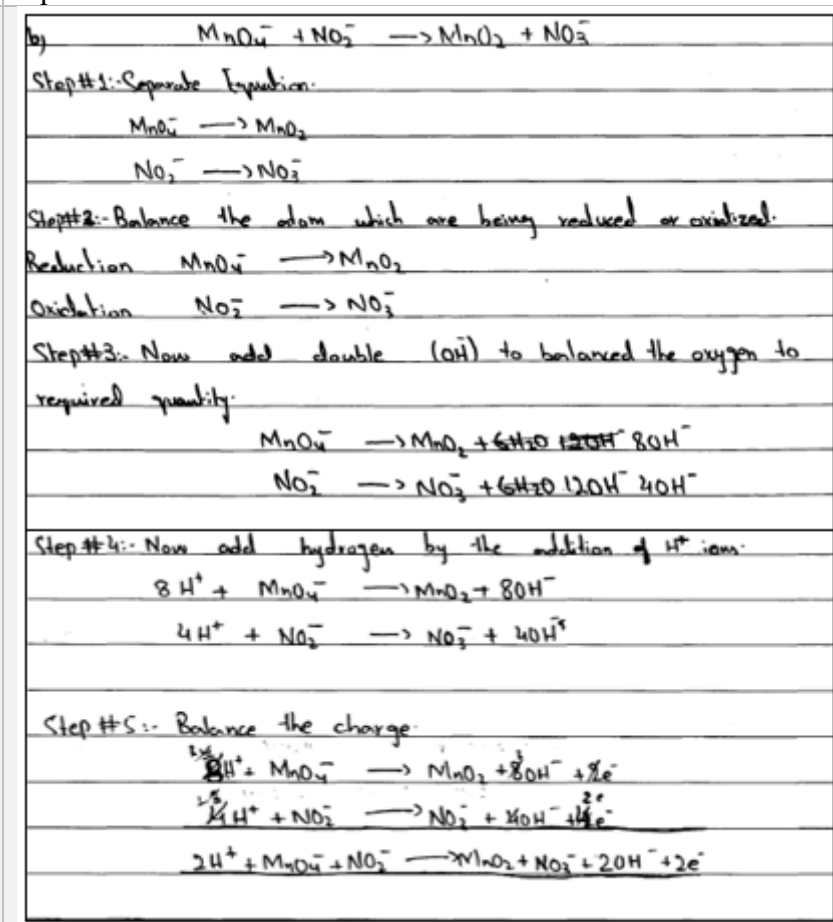 b) MnO₄⁻ + NO₂⁻ → MnO₂ + NO₃⁻
Step#1:- Separate Equation.
MnO₄⁻ → MnO₂
NO₂⁻ → NO₃⁻
Step#2:- Balance the atom which are being reduced or oxidized.
Reduction MnO₄⁻ → MnO₂
Oxidation NO₂⁻ → NO₃⁻
Step#3:- Now add double (OH⁻) to balanced the oxygen to
required quantity.
MnO₄⁻ → MnO₂ + 6H₂O 12OH⁻ 8OH⁻
NO₂⁻ → NO₃⁻ + 6H₂O 12OH⁻ 4OH⁻
Step#4:- Now add hydrogen by the addition of H⁺ ions.
8H⁺ + MnO₄⁻ → MnO₂ + 8OH⁻
4H⁺ + NO₂⁻ → NO₃⁻ + 4OH⁻
Step#5:- Balance the charge.
H⁺ + MnO₄⁻ → MnO₂ + 8OH⁻ + e⁻
4H⁺ + NO₂⁻ → NO₃⁻ + OH⁻ + e⁻
2H⁺ + MnO₄⁻ + NO₂⁻ → MnO₂ + NO₃⁻ + 2OH⁻ + 2e⁻